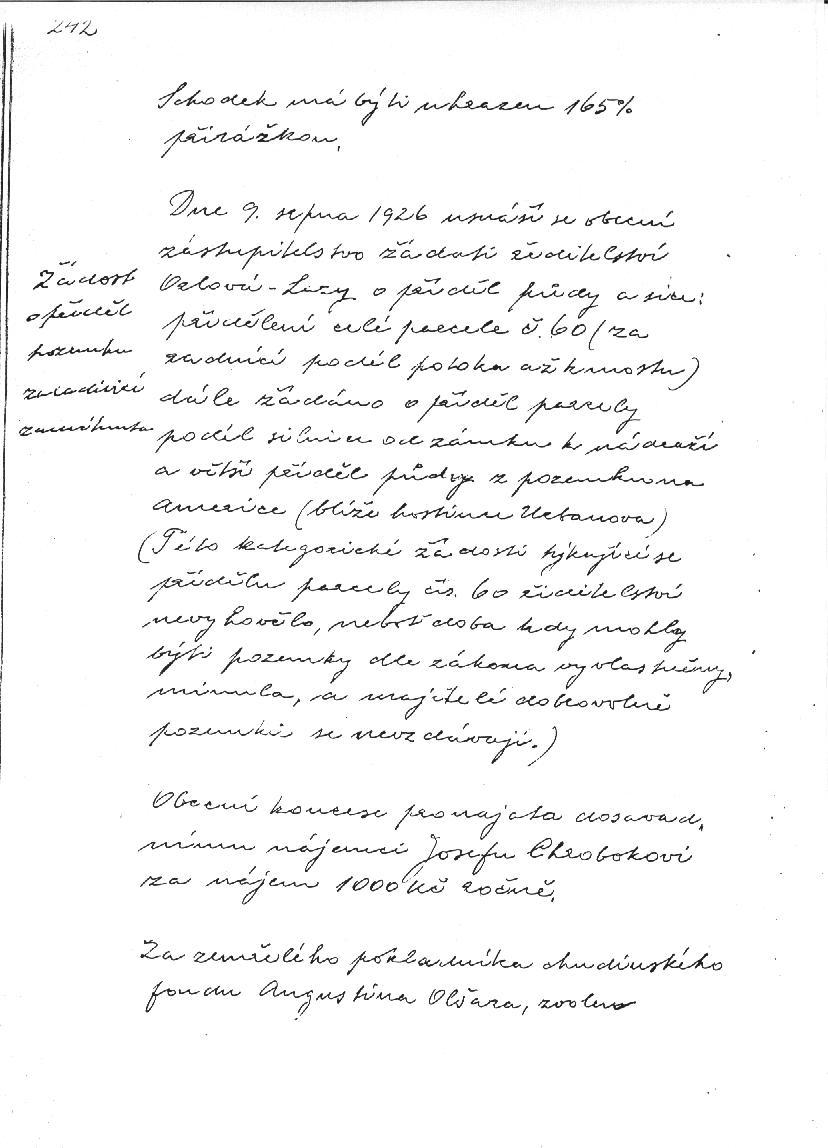 242
Schodek má býti uhrazen 165%
přirážkou.
Dne 9. srpna 1926 usnáší se obecní
zastupitelstvo žádati ředitelství
Orlová-Lazy o příděl půdy a sice:
přidělení celé parcele č. 60 (za
zadnící podél potoka až k mostu)
dále žádáno o příděl parcely
podél silnice od zámku k nádraží
a větší příděl půdy z pozemku na
Americe (blíže hostince Urbanova)
(Této kategorické žádosti týkající se
přídělu parcely čís. 60 ředitelství
nevyhovělo, neboť doba kdy mohly
býti pozemky dle zákona vyvlastněny,
minula, a majitelé dobrovolně
pozemků se nevzdávají.)
Žádost
o příděl
pozemku
zamítnuta
Obecní koncese pronajata dosavad.
nímu nájemci Josefu Chrobokovi
za nájem 1000 Kč ročně.
Za zemřelého pokladníka chudinského
fondu Augustina Olšara, zvolen